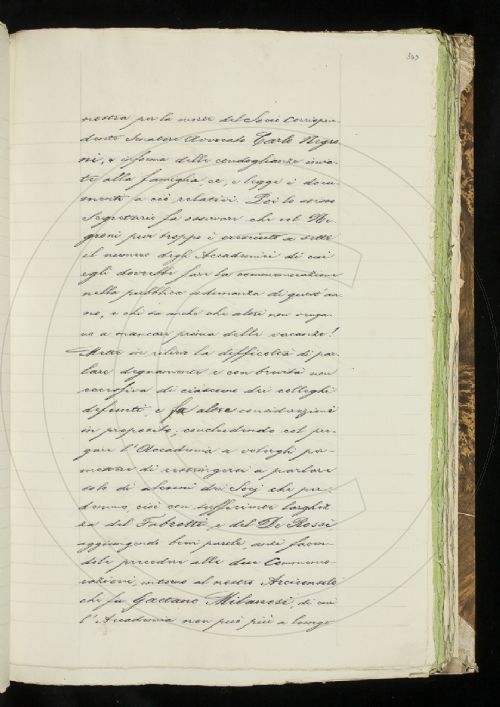 343
nostra per la morte del Socio Corrispon-
dente Senatore Avvocato Carlo Negro-
ni, e informa delle condoglianze invia-
te alla famiglia ec., e legge i docu-
menti a ciò relativi. Poi lo stesso
Segretario fa osservare che col Ne-
groni pur troppo è cresciuto a sette
il numero degli Accademici di cui
egli dovrebbe fare la commemorazione
nella pubblica adunanza di quest'an-
no, e chi sa anche che altri non venga-
no a mancare prima delle vacanze!
Mette in rilievo la difficoltà di par-
lare degnamente e con brevità non
eccessiva di ciascuno dei colleghi
defunti, e fa altre considerazioni
in proposito, concludendo col pre-
gare l'Accademia a volergli per-
mettere di restringersi a parlare
solo di alcuni dei Socj che per-
demmo, cioè con sufficiente larghez-
za del Fabretti e del De Rossi
aggiungendo brevi parole, anzi facen-
dole precedere alle due Commemo-
razioni, intorno al nostro Arciconsolo
che fu Gaetano Milanesi, di cui
l'Accademia non può più a lungo